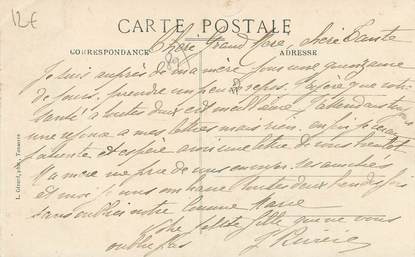 12€
CARTE POSTALE
CORRESPONDANCE
ADRESSE
Chère Grand Mère, chère Tante
Je suis auprès de ma mère pour une quinzaine
de jours prendre un peu de repos. J'espère que votre
santé a toutes deux est meilleure. J'attendais toujours
une réponse a mes lettres mais rien. enfin je
patiente et espère avoir une lettre de vous bientôt
Ma mère me prie de vous envoyer ses amitiés
et moi je vous embrasse toutes deux bien fort
sans oublier notre Marie
Votre petite fille qui ne vous
oublie pas
L. Gérard, phot., Tonnerre